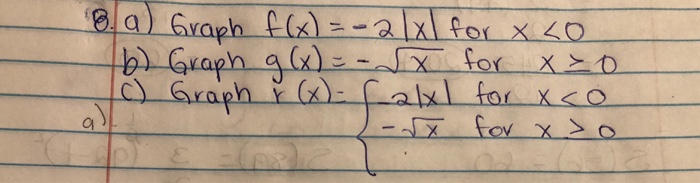 8. a) Graph f(x) = -2|x| for x < 0
b) Graph g(x) = -√x for x ≥ 0
c) Graph r(x) = { -2|x| for x < 0
a) -√x for x ≥ 0